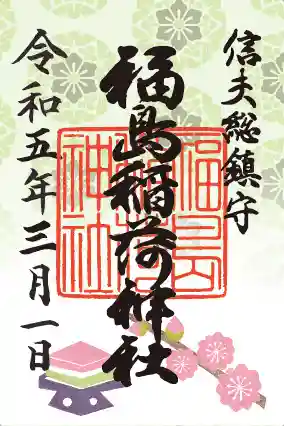 信夫総鎮守
福島稲荷神社
令和五年三月一日
福島稲荷神社